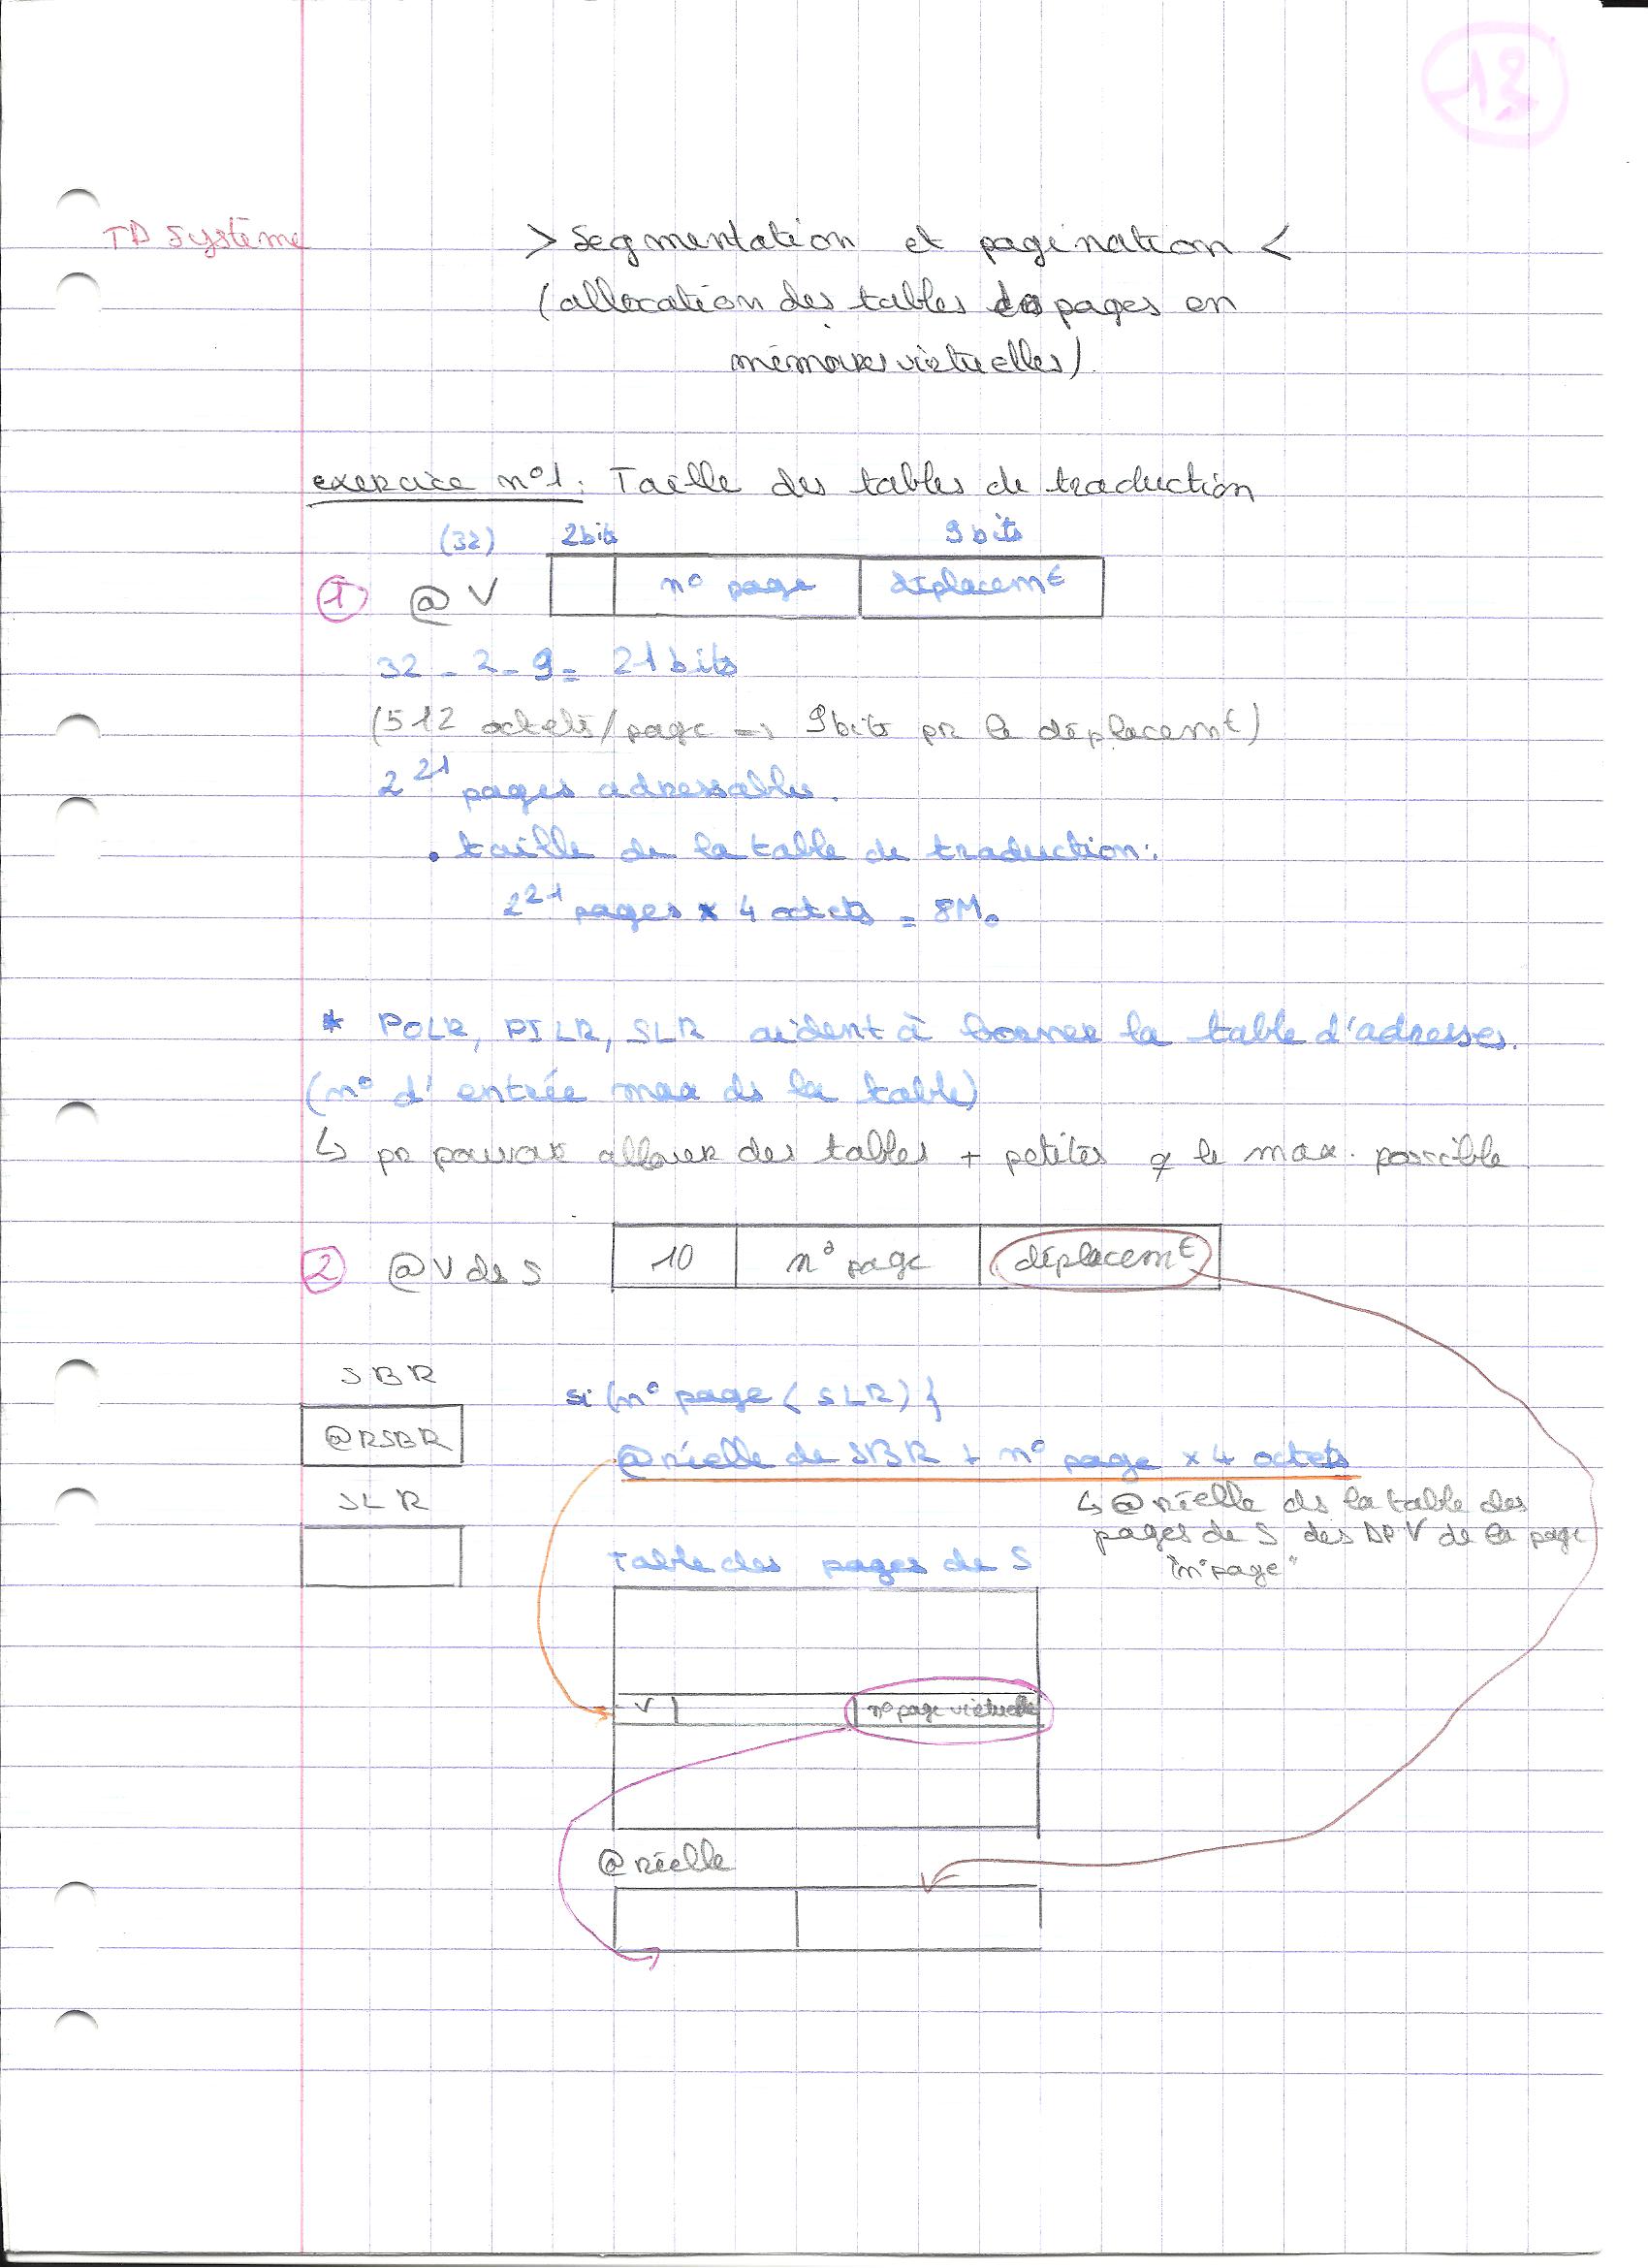 13
TD Système
> Segmentation et pagination <
(allocation des tables de pages en
mémoires virtuelles)
exercice n°1: Taille des tables de traduction
(32) 2bits 9bits
① @V n° page déplacemt
32 - 2 - 9 = 21 bits
(512 octets/page => 9bits pr le déplacemt)
2^21 pages adressables.
• taille de la table de traduction:
2^21 pages * 4 octets = 8Mo
* POLR, PILR, SLR aident à borner la table d'adresses.
(n° d'entrée max ds la table)
↳ pr pouvoir allouer des tables + petites q le max. possible
② @V ds S 10 n° page déplacemt
SBR
si (n° page < SLR) {
@RSBR
@ réelle de SBR + n° page × 4 octets
SLR
↳ @ réelle ds la table des
pages de S des DPV de la page
"n° page"
Table des pages de S
V n° page virtuelle
@ réelle